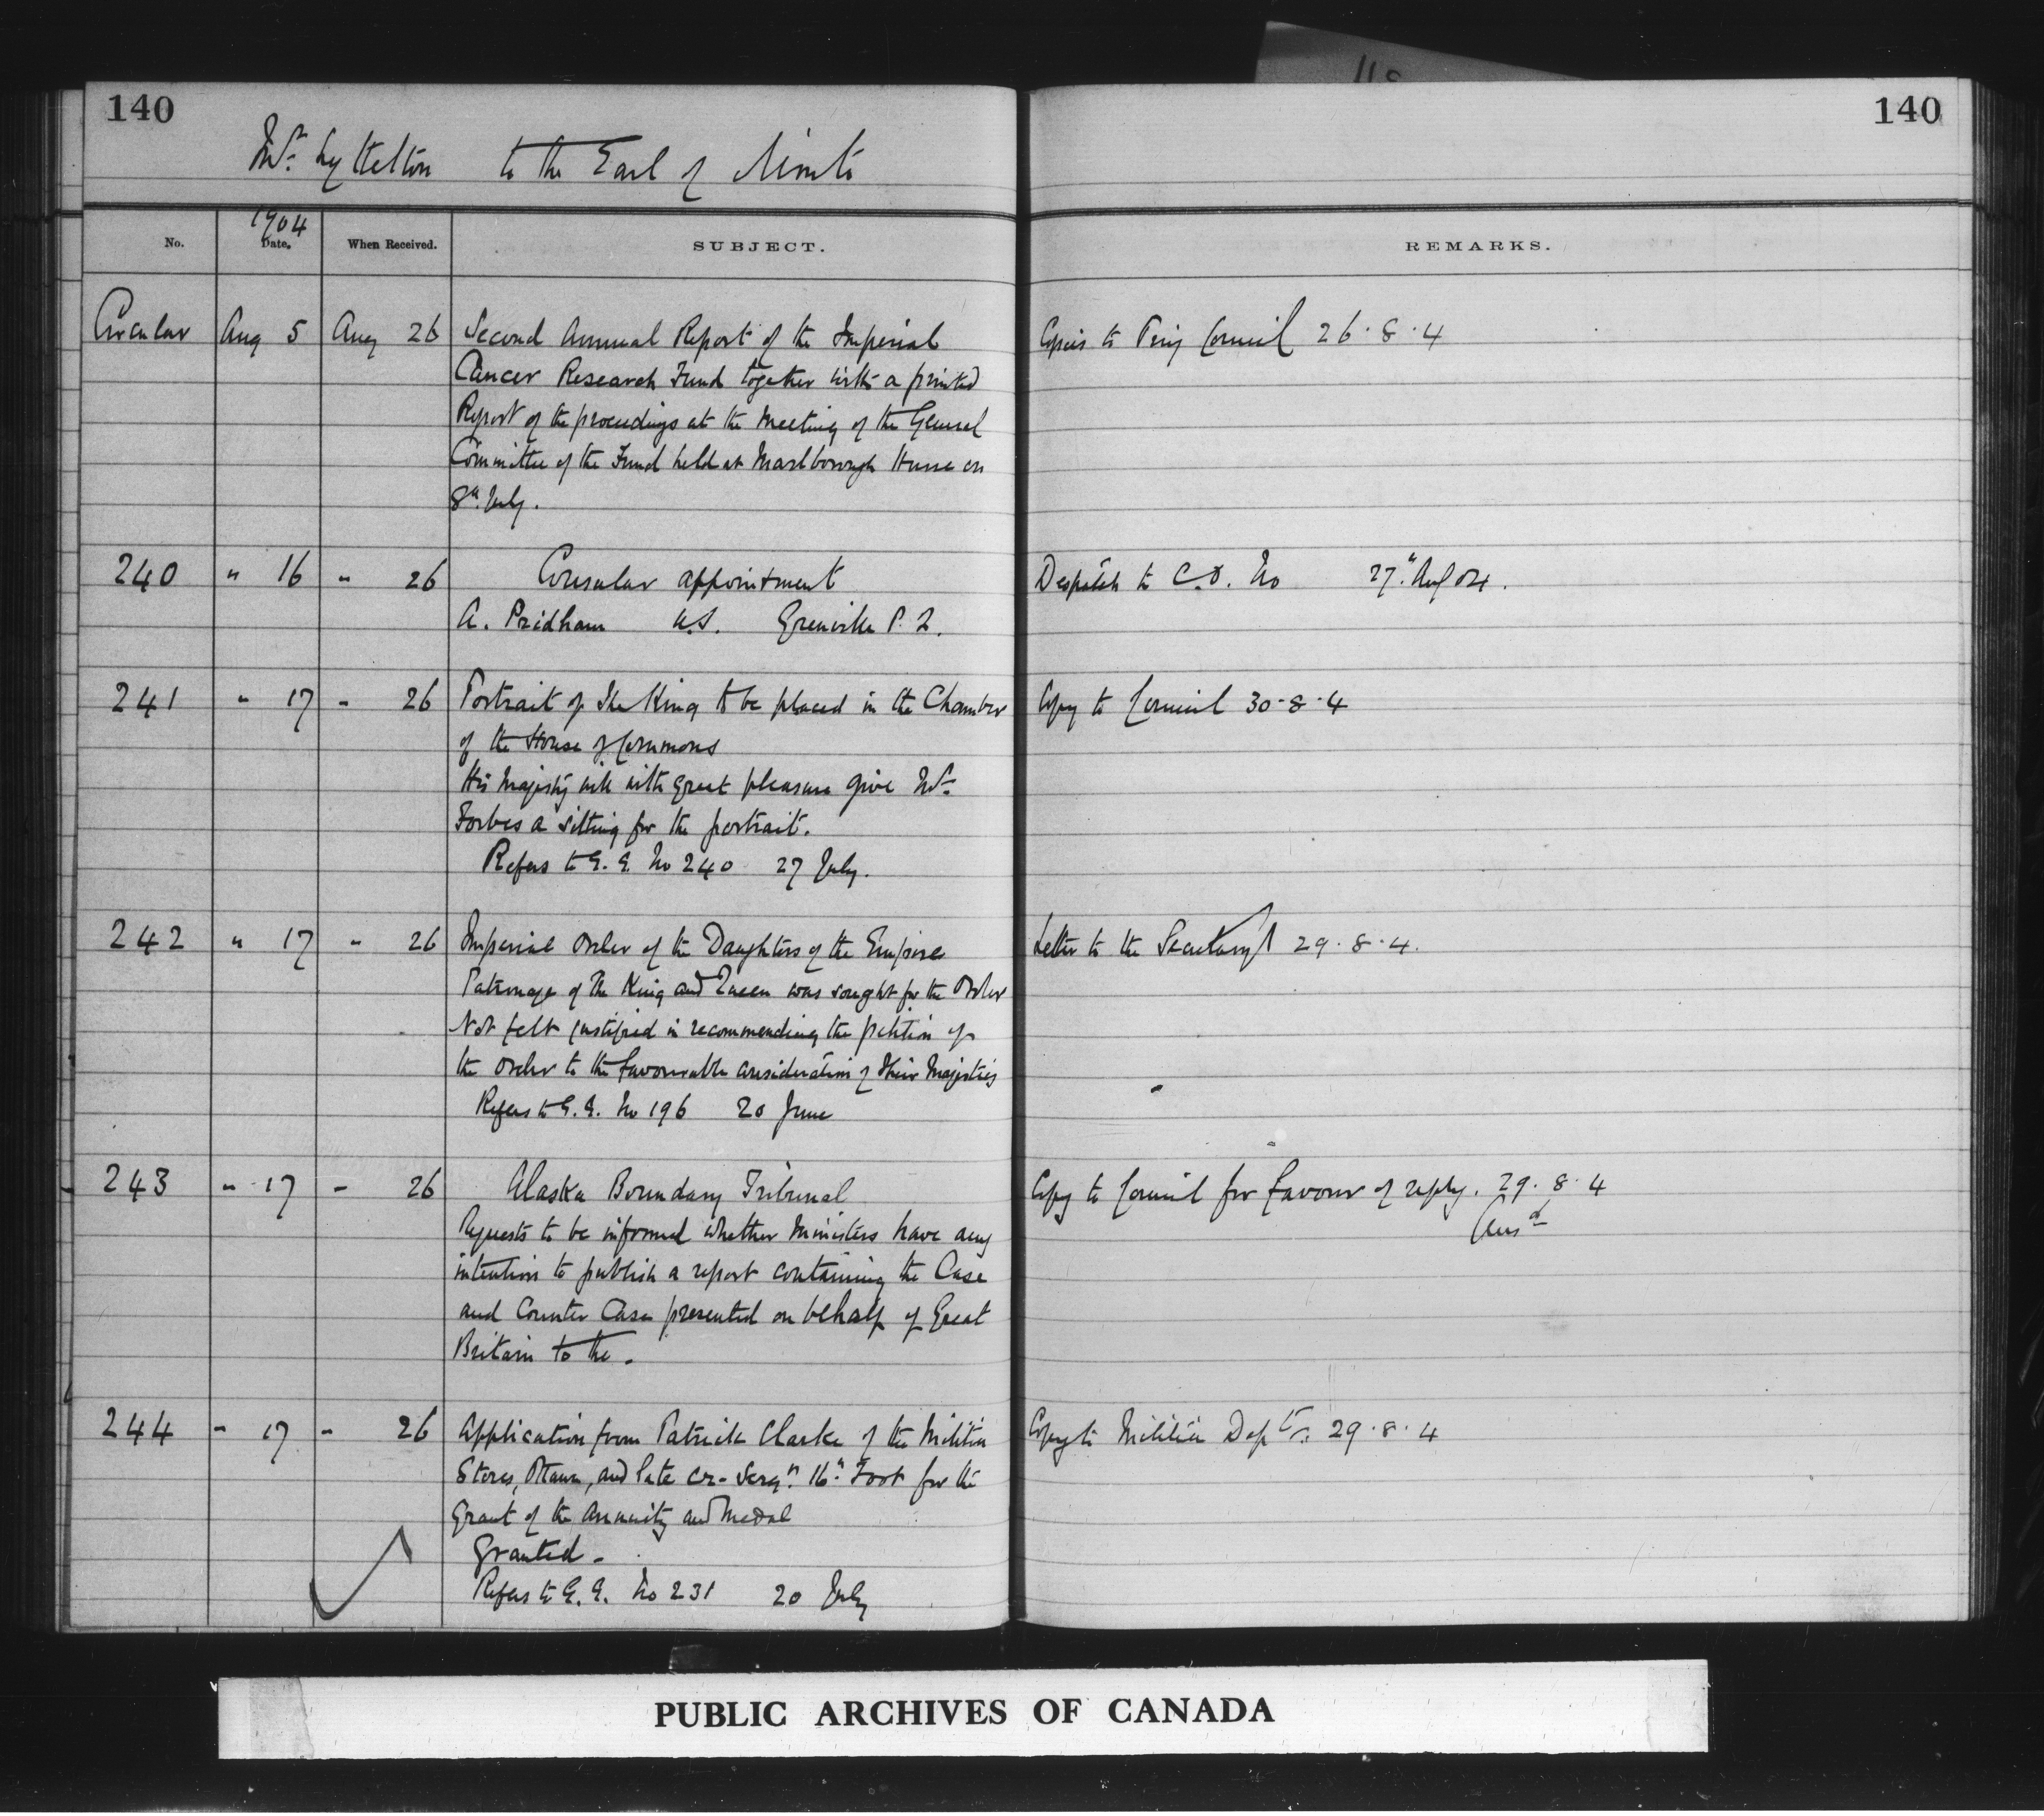 118
140
140
Mr. Lyttelton to the Earl of Minto
1904
No. Date. When Received. SUBJECT. REMARKS.
Circular Aug 5 Aug 26 Second Annual Report of the Imperial Copies to Privy Council 26.8.4
Cancer Research Fund together with a printed
Report of the proceedings at the Meeting of the General
Committee of the Fund held at Marlborough House on
8th July.
240 " 16 " 26 Consular appointment Despatch to C.O. No 27th Aug 04.
A. Pridham U.S. Grenville P.Q.
241 " 17 " 26 Portrait of The King to be placed in the Chamber Copy to Council 30-8-4
of the House of Commons
His Majesty will with great pleasure give Mr.
Forbes a sitting for the portrait.
Refers to G.G. No 240 27 July.
242 " 17 " 26 Imperial Order of the Daughters of the Empire Letter to the Secretary 29.8.4.
Patronage of The King and Queen was sought for the Order
Not felt justified in recommending the petition of
the Order to the favourable consideration of Their Majesties
Refers to G.G. No 196 20 June
243 " 17 " 26 Alaska Boundary Tribunal Copy to Council for favour of reply. 29.8.4
Requests to be informed whether Ministers have any Ansd
intention to publish a report containing the Case
and Counter Case presented on behalf of Great
Britain to the.
244 " 17 " 26 Application from Patrick Clarke of the Militia Copy to Militia Dept. 29.8.4
Stores, Ottawa, and late Cr-Sergt. 16th Foot for the
Grant of the annuity and Medal
Granted.
Refers to G.G. No 231 20 July
PUBLIC ARCHIVES OF CANADA